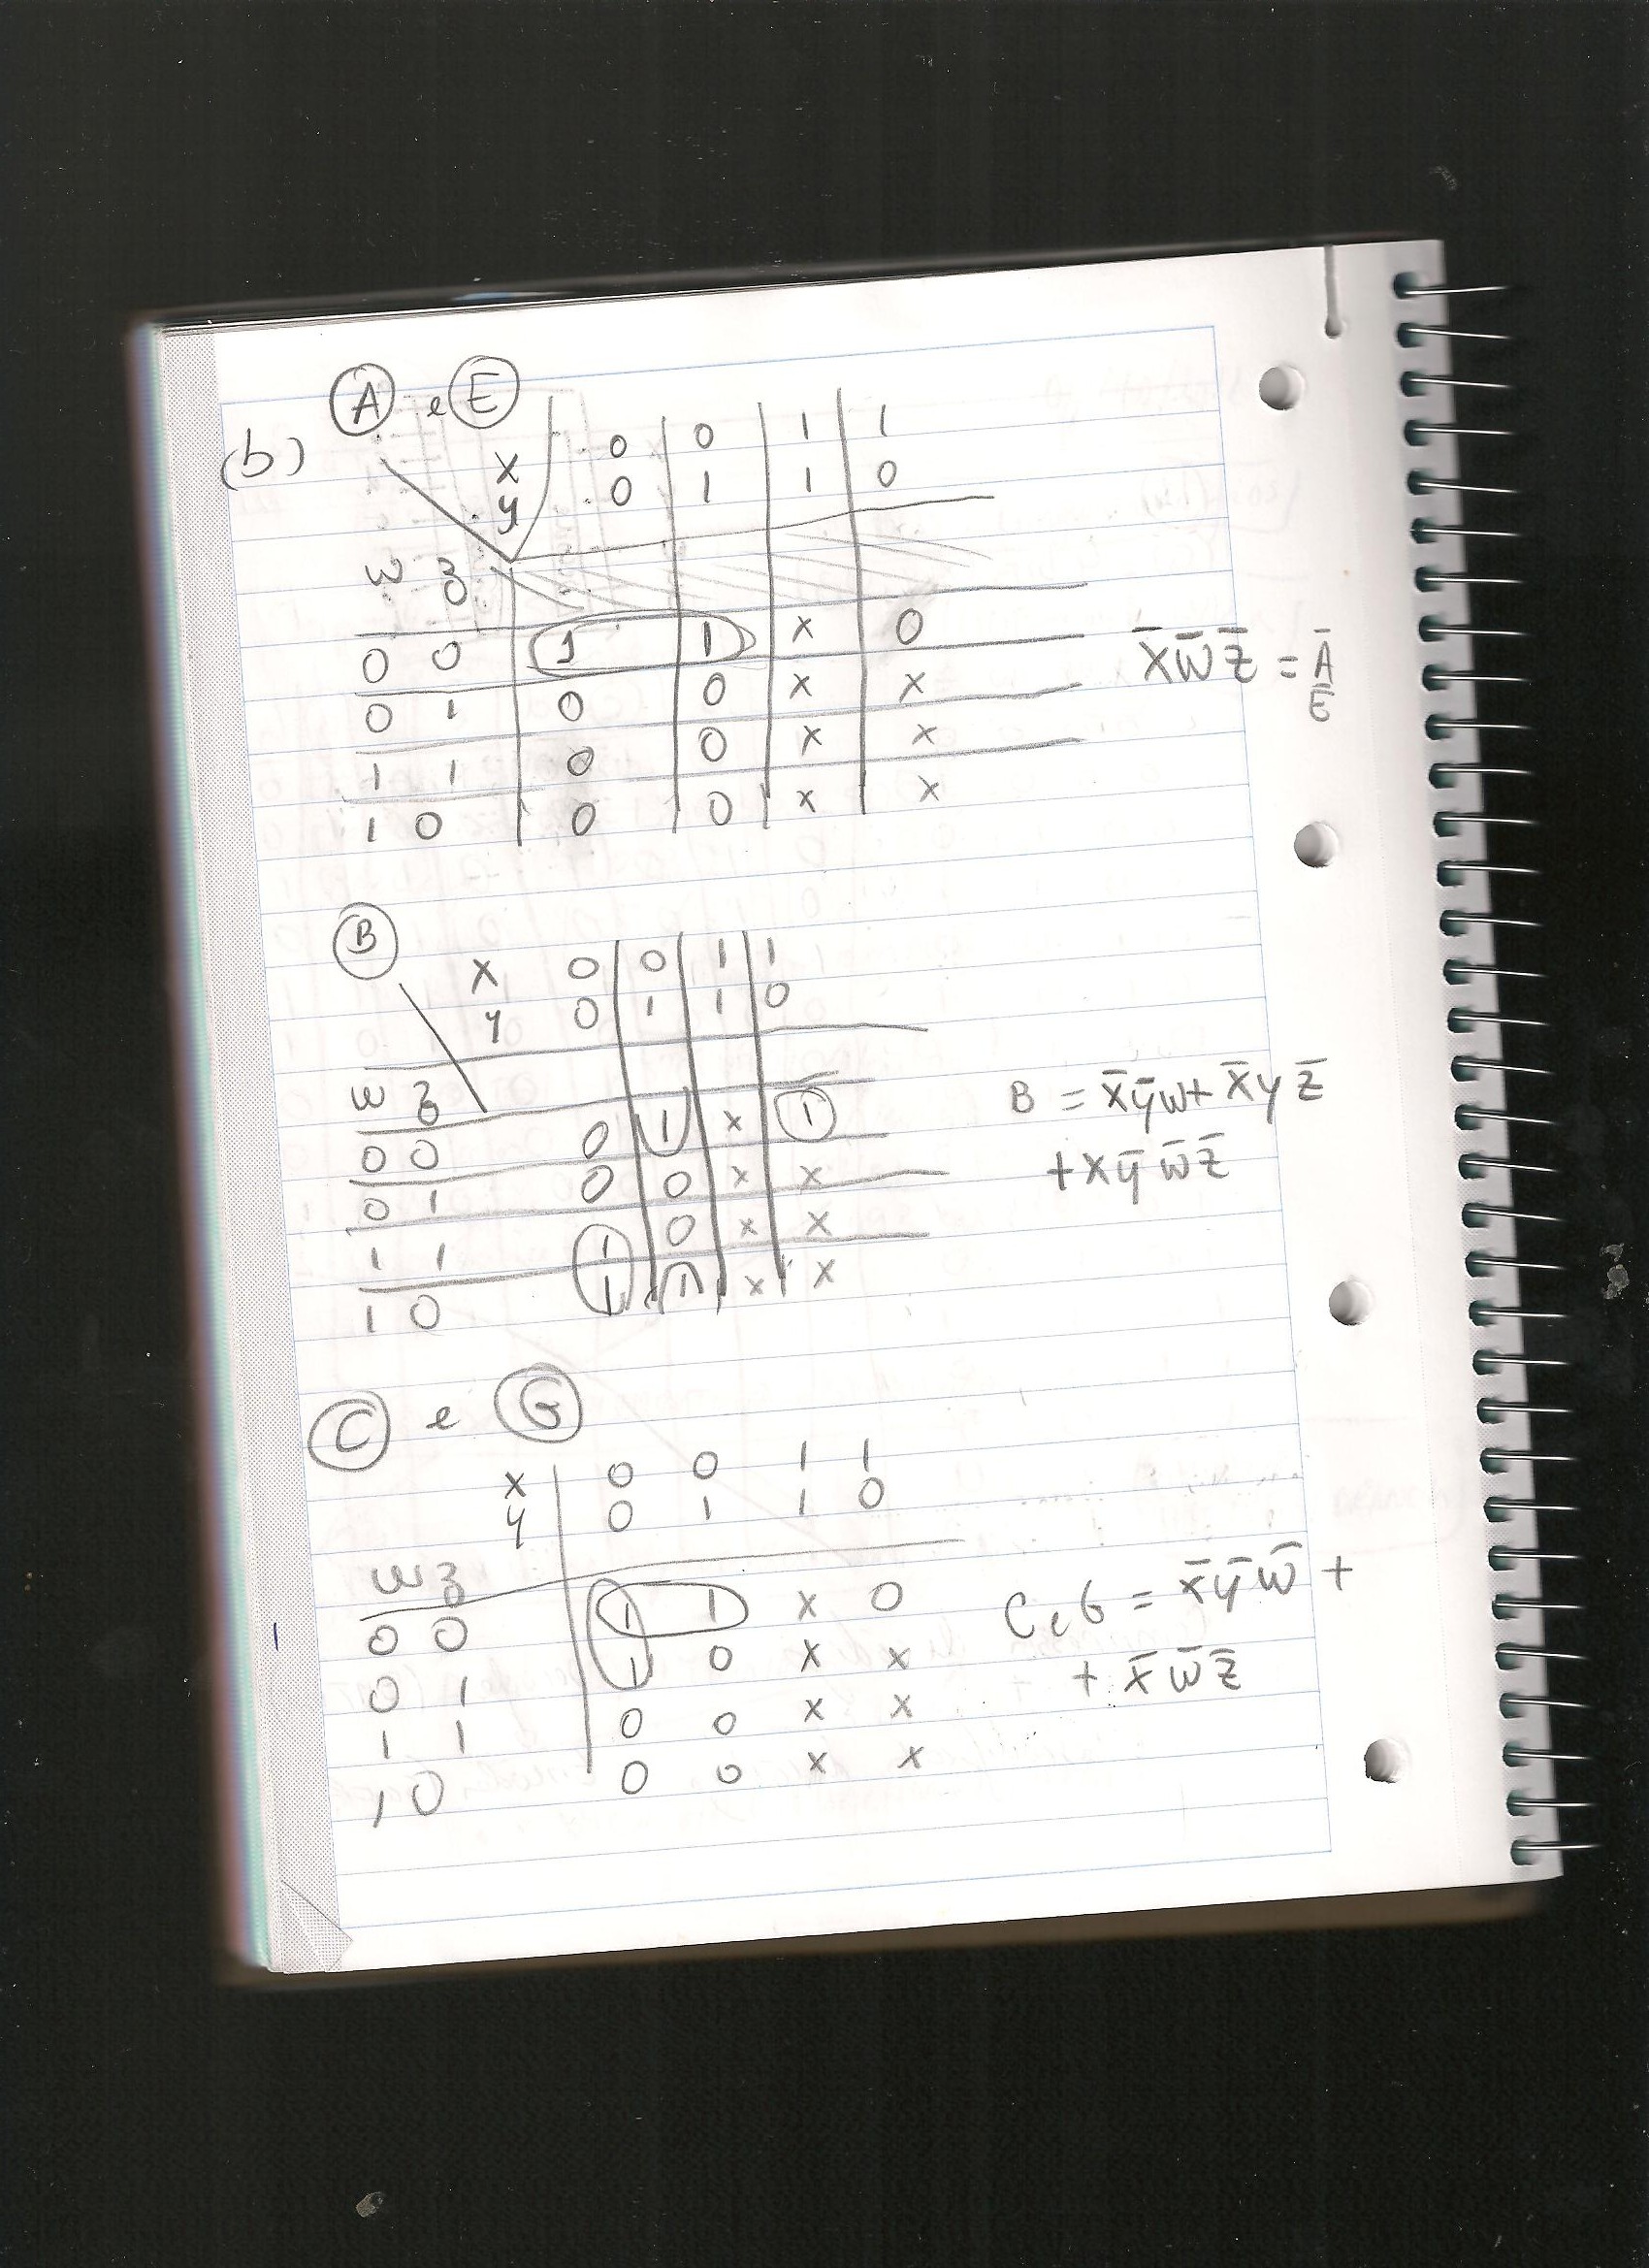 (b) A e E
X 0 0 1 1
y 0 1 1 0
w z
0 0 1 1 x 0
0 1 0 0 x x
1 1 0 0 x x
1 0 0 0 x x
X̄ w̄ z̄ = Ā
E̅
B
X 0 0 1 1
y 0 1 1 0
w z
0 0 0 1 x 1
0 1 0 0 x x
1 1 1 0 x x
1 0 1 1 x x
B = x̄ ȳ w + x̄ y z̄
+ x ȳ w̄ z̄
C e G
x 0 0 1 1
y 0 1 1 0
w z
0 0 1 1 x 0
0 1 1 0 x x
1 1 0 0 x x
1 0 0 0 x x
C e G = x̄ ȳ w̄ +
+ x̄ w̄ z̄